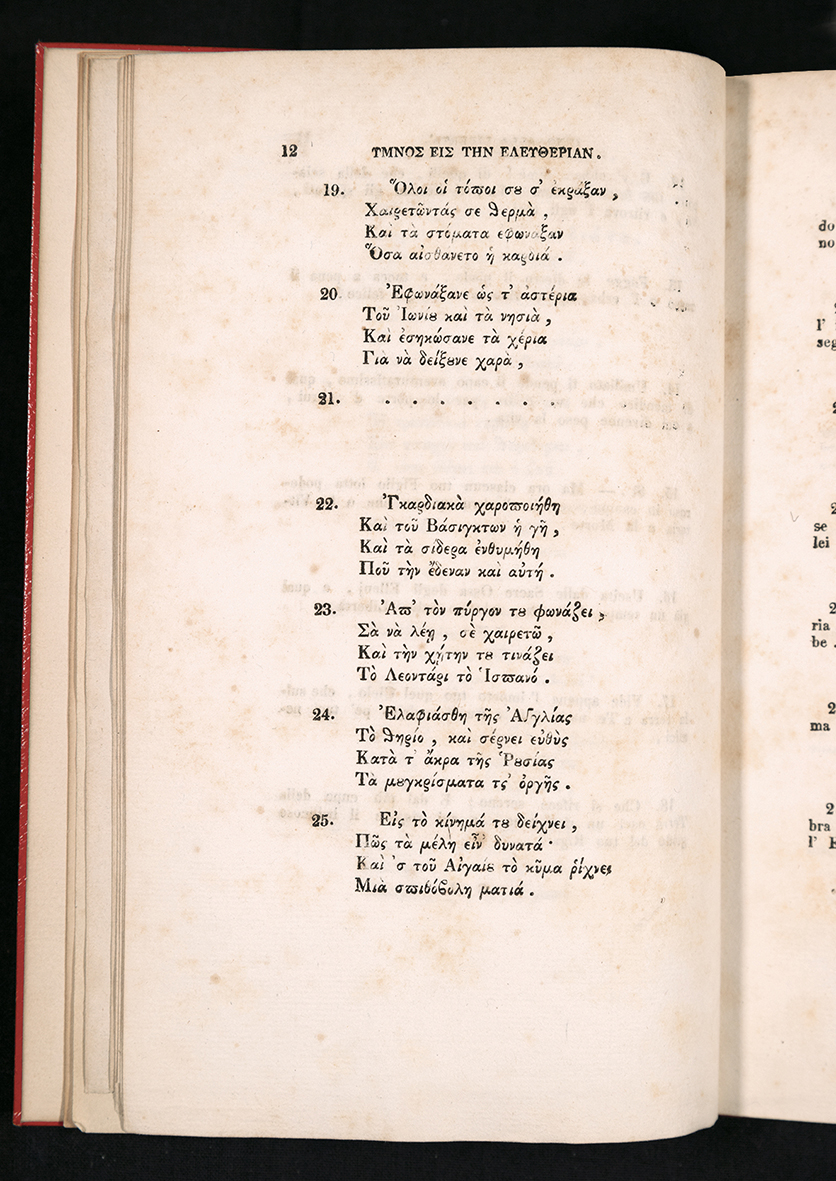 12 ΥΜΝΟΣ ΕΙΣ ΤΗΝ ΕΛΕΥΘΕΡΙΑΝ.
19. Ὅλοι οἱ τόποι σȣ σ' ἐκράξαν,
Χαιρετῶντάς σε θερμὰ,
Καὶ τὰ στόματα εφωνάξαν
Ὅσα αἰσθάνετο ἡ καρδιά.
20 Ἐφωνάξανε ὡς τ' ἀστέρια
Τοῦ Ἰωνίȣ καὶ τὰ νησιὰ,
Καὶ ἐσηκώσανε τὰ χέρια
Γιὰ νὰ δείξȣνε χαρὰ,
21. . . . . . . .
22. Ἐγκαρδιακὰ χαροποιήθη
Καὶ τοῦ Βάσιγκτων ἡ γῆ,
Καὶ τὰ σίδερα ἐνθυμήθη
Ποῦ τὴν ἔδεναν καὶ αὐτή.
23. Ἀπ' τὸν πύργον τȣ φωνάζει,
Σὰ νὰ λέῃ, σὲ χαιρετῶ,
Καὶ τὴν χήτην τȣ τινάζει
Τὸ Λεοντάρι τὸ Ἱσπανό.
24. Ἐλαφιάσθη τῆς Ἀγγλίας
Τὸ θηρίο, καὶ σέρνει εὐθὺς
Κατὰ τ' ἄκρα τῆς Ῥȣσίας
Τὰ μȣγκρίσματα τς' ὀργῆς.
25. Εἰς τὸ κίνημά τȣ δείχνει,
Πῶς τὰ μέλη εἶν' δυνατά·
Καὶ 'ς τοῦ Αἰγαίȣ τὸ κῦμα ῥίχνει
Μιὰ σπιθόβολη ματιά.
do
no
l'
seg
2
2
se
lei
2
ria
be.
2
ma
2
bra
l'